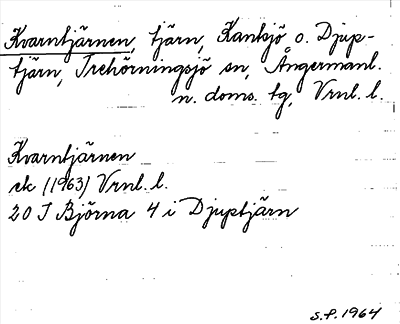 Kvarntjärnen, tjärn, Kantsjö o. Djup-
tjärn, Trehörningsjö sn, Ångermanl.
n. doms. tg, Vrnl. l.
Kvarntjärnen
ek (1963) Vrnl. l.
20 J Björna 4 i Djuptjärn
S.F. 1964